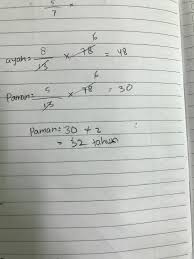 5/7 ×
ayah = 8/13 × 78 6 = 48
Paman = 5/13 × 78 6 = 30
Paman = 30 + 2
= 32 tahun